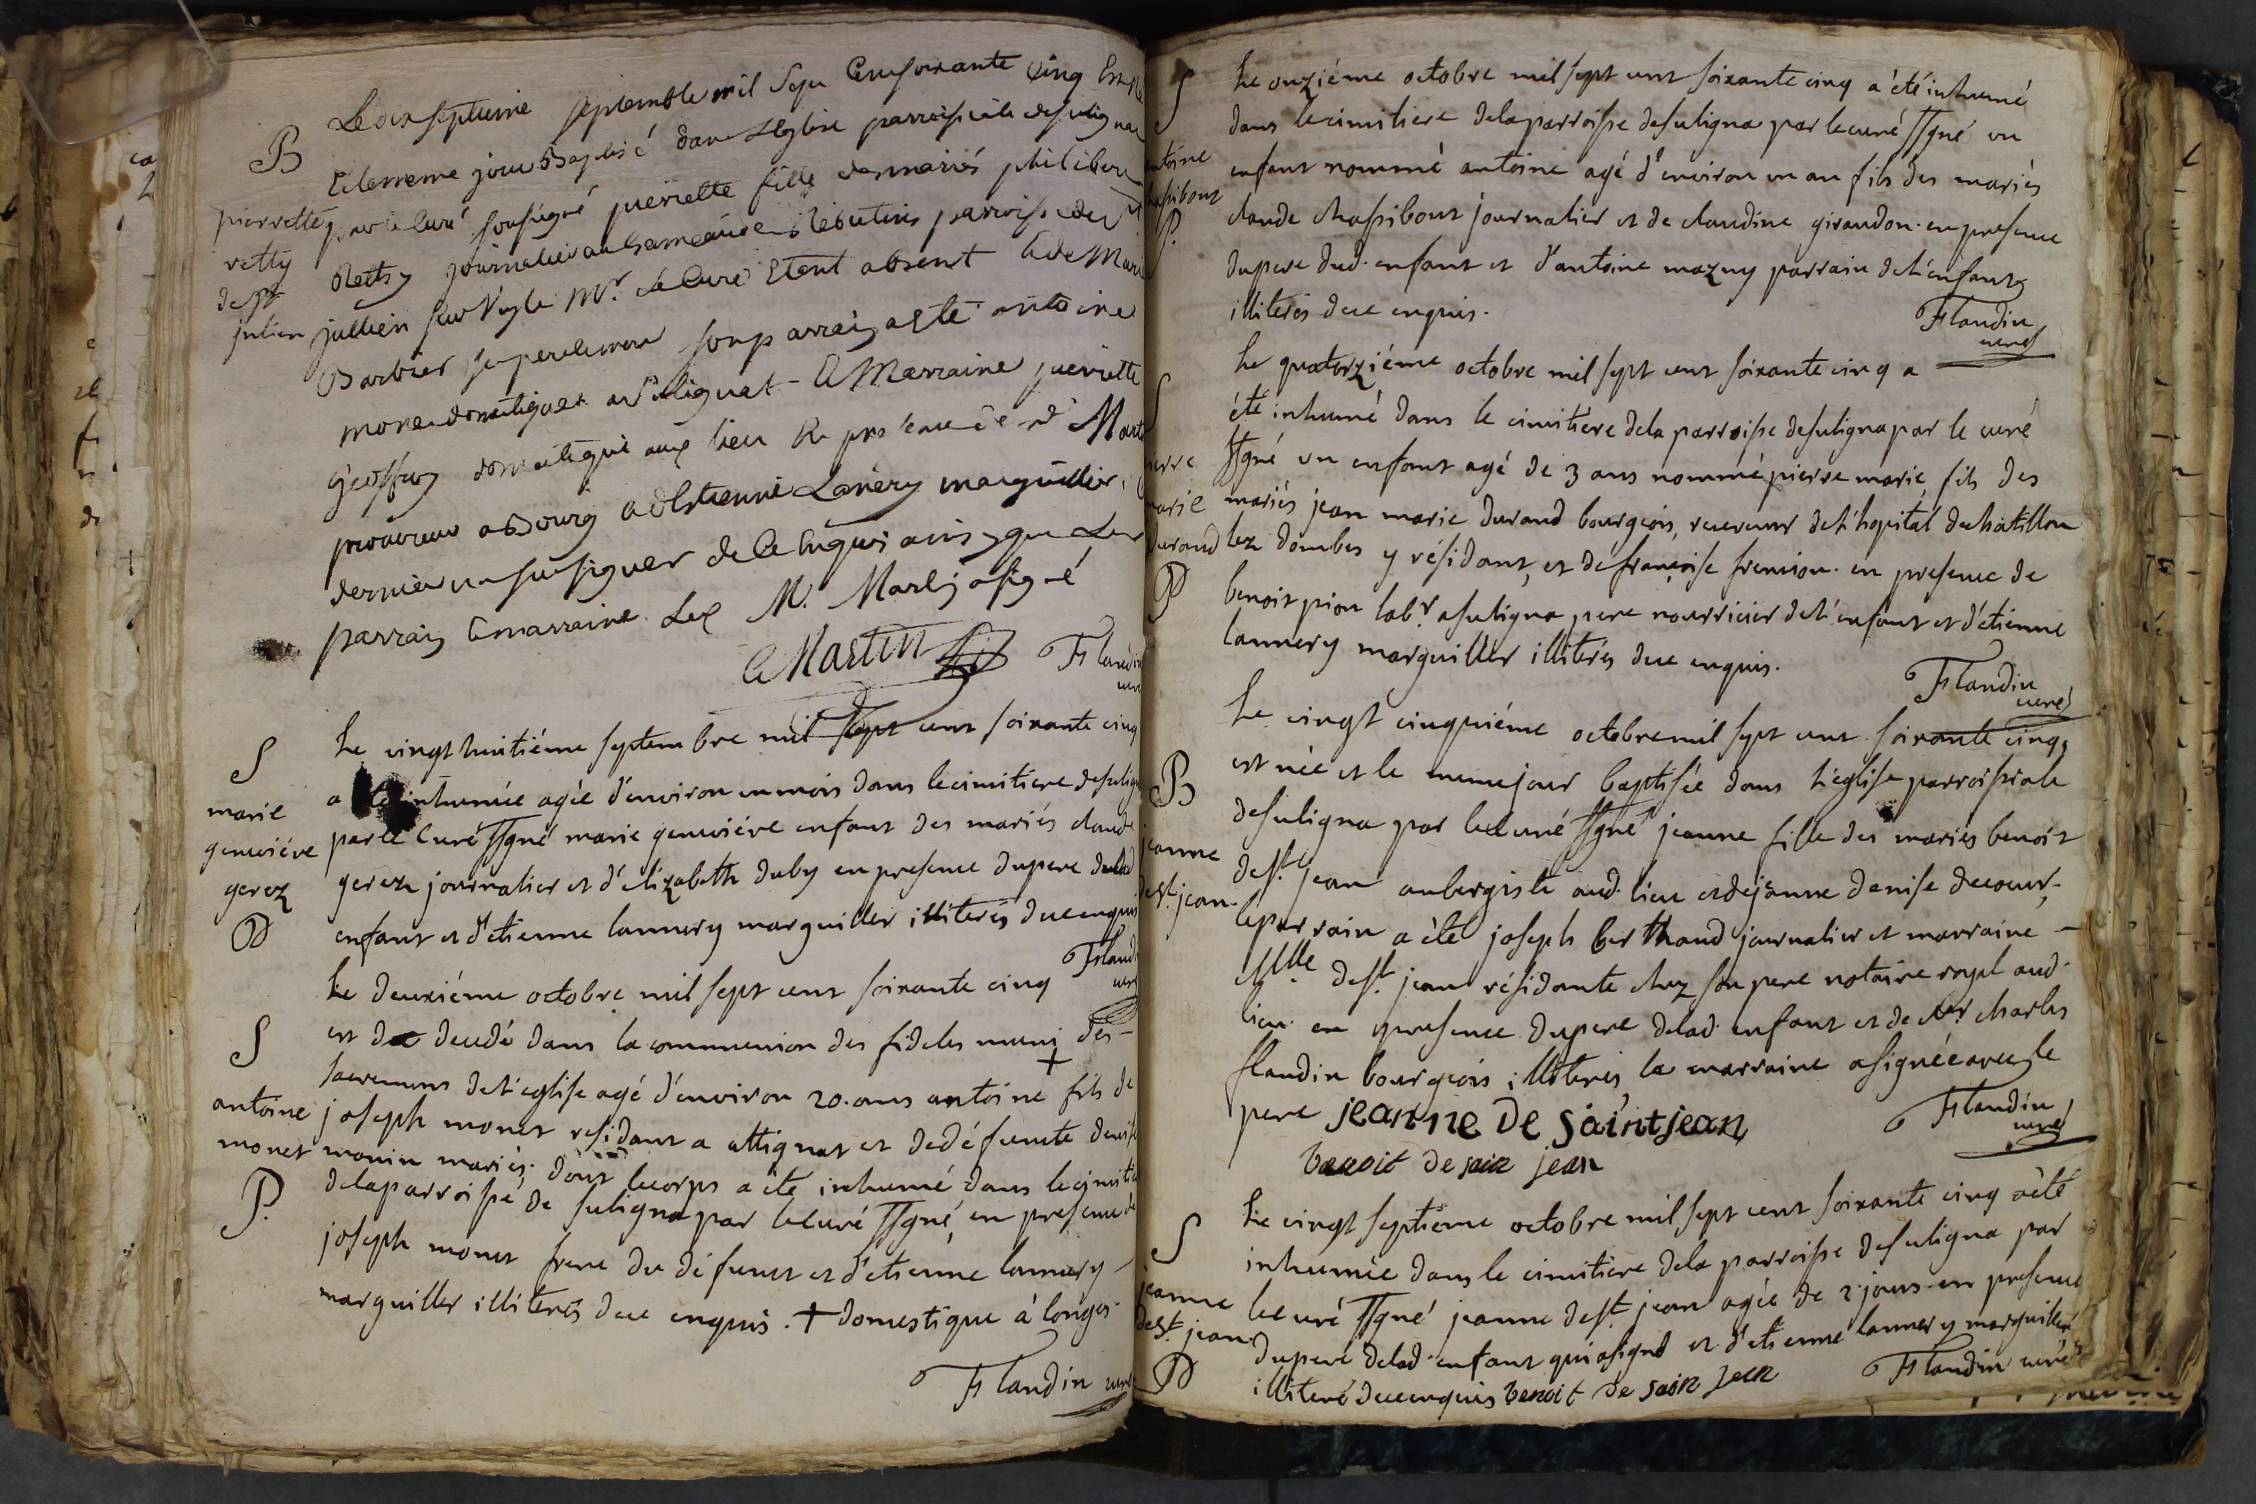 B
pierrette
retty
de st
julien
Le dix septieme septembre mil sept Cent soixante Cinq Est née
Et le meme jour Baptisé dans L'eglise parroissiale de suligna
par le Curé soussigné pierrette fille des mariés philibert
Retty journalier au hameau de parroisse de st
jullien sur Veyle Mr. le Curé Etant absent Et de Marie
Barbier son parrain a Eté antoine
monet domestique a Sulignat - Et Marraine pierrette
Geoffray domestique aud lieu En presence de sr Martin
procureur a Bourg Et d'Estienne Lanery marguillier,
dernier n'a su signer de Ce Enquis ainsy que Les
parrain Et marraine. Led M. Martin a signé
Martin
Flandin
curé
S
marie
geneviéve
gerez
P
Le vingt huitiéme septembre mil sept cent soixante cinq
a été inhumée agée d'environ un mois dans le cimitiere de suligna
par le Curé ssgné marie geneviéve enfant des mariés claude
gerez journalier et d'elizabeth duby en presence du pere de lad
enfant et d'etienne lannery marguiller illiterés de ce enquis
Flandin
curé
S
antoine
monet
P.
Le deuxiéme octobre mil sept cent soixante cinq
est decedé dans la communion des fideles muni des
sacremens de l'eglise agé d'environ 20. ans antoine + fils de
joseph monet residant a attignat et de défunte denise
monin mariés. dont le corps a été inhumé dans le cimitiere
de la parroisse de suligna par le curé ssgné, en presence de
joseph monet frere du défunt et d'etienne lannery
marguiller illiterés de ce enquis. + domestique à longes.
Flandin curé
S
antoine
chassibout
P.
Le onziéme octobre mil sept cent soixante cinq a été inhumé
dans le cimitiere de la parroisse de suligna par le curé ssgné un
enfant nommé antoine agé d'environ un an fils des mariés
claude chassibout journalier et de claudine girandon. en presence
du pere dud. enfant et d'antoine mazuy parrain de l'enfant
illiterés de ce enquis.
Flandin
curé
S
pierre
marie
durand
P
Le quatorziéme octobre mil sept cent soixante cinq a
été inhumé dans le cimitiere de la parroisse de suligna par le curé
ssgné un enfant agé de 3 ans nommé pierre marie fils des
mariés jean marie durand bourgeois, receveur de l'hopital de chatillon
lez dombes y résidant, et de françoise fremion. en presence de
benoit pion labr. a suligna pere nourricier de l'enfant et d'etienne
lannery marguiller illiterés de ce enquis.
Flandin
curé
B
jeanne
de st. jean.
Le vingt cinquiéme octobre mil sept cent soixante cinq,
est née et le meme jour baptisée dans l'eglise parroissiale
de suligna par le curé ssgné jeanne fille des mariés benoit
de st. jean aubergiste aud. lieu et de jeanne denise decour,
le parrain a été joseph berthaud journalier et marraine
Mlle de st. jean résidante chez son pere notaire royal aud.
lieu. en presence du pere de lad. enfant et de sr charles
flandin bourgeois illiterés, la marraine a signée avec le
pere jeanne De Saintjean
Flandin
curé
benoit de sain jean
S
jeanne
de st. jean.
P
Le vingt septieme octobre mil sept cent soixante cinq a été
inhumée dans le cimitiere de la parroisse de suligna par
le curé ssgné jeanne de st. jean agée de 2 jours en presence
du pere de lad. enfant qui a signé et d'etienne lannery marguiller
illiteré de ce enquis benoit de sain jean
Flandin curé